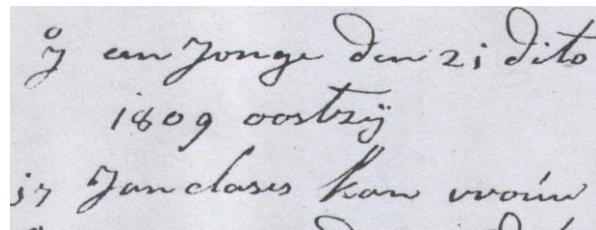 een Jonge den 21 dito
1809 oostzÿ
17 Jan clases kan vroúw